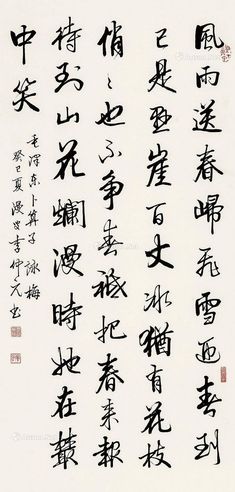 風雨送春歸飛雪迎春到
已是懸崖百丈冰猶有花枝
俏〻也不争春祗把春来報
待到山花爛漫時她在叢
中笑
毛澤東卜算子詠梅
癸巳夏漫叟李仲元书